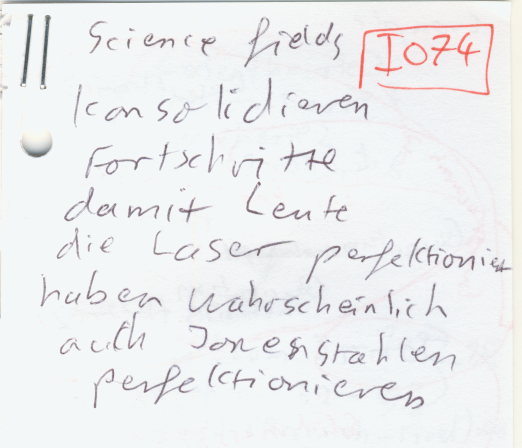 Science fields
I074
konsolidieren
Fortschritte
damit Leute
die Laser perfektioniert
haben wahrscheinlich
auch Ionenstahlen
perfektionieren